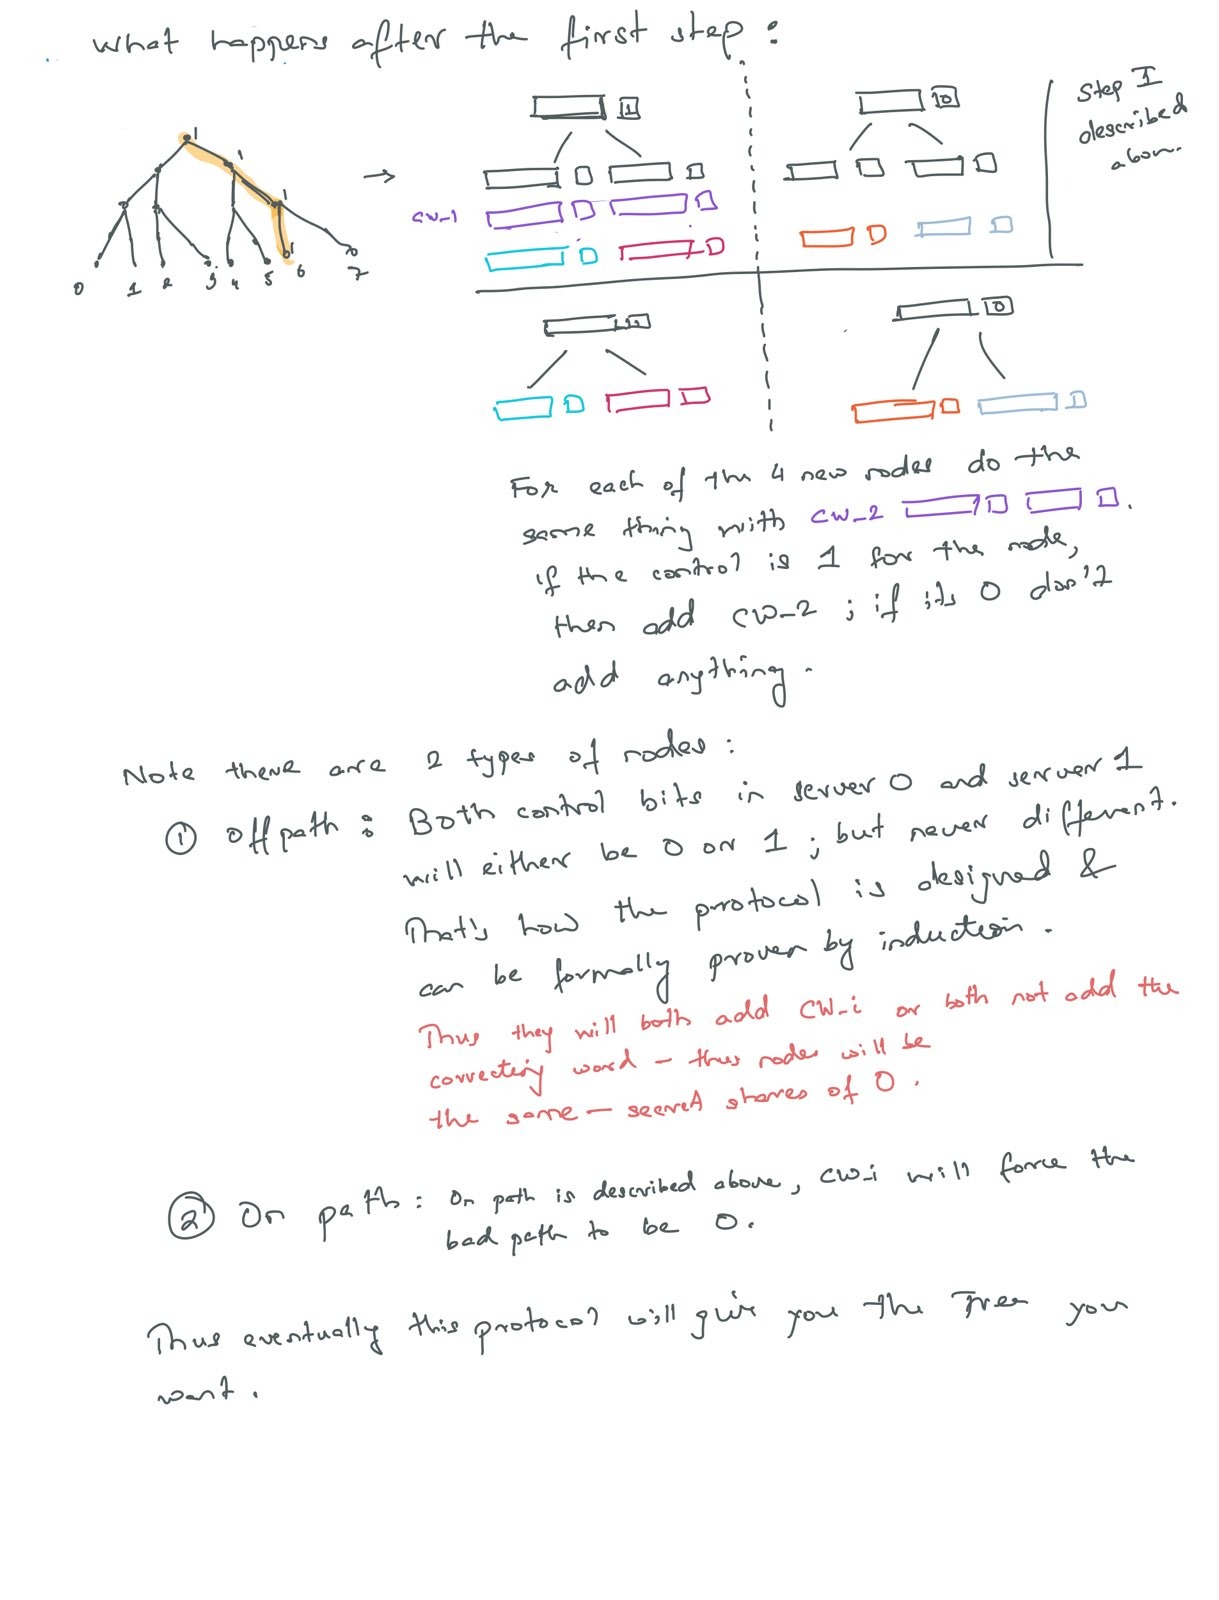 What happens after the first step :
1
1
1
1
0
0 1 2 3 4 5 6 7
1
0
Step I
described
above.
CW_1
1
0
For each of the 4 new nodes do the
same thing with CW_2 .
if the control is 1 for the node,
then add CW_2 ; if its 0 don't
add anything .
Note there are 2 types of nodes :
① Off path : Both control bits in server 0 and server 1
will either be 0 or 1 ; but never different.
That's how the protocol is designed &
can be formally proven by induction .
Thus they will both add CW_i or both not add the
correcting word – thus nodes will be
the same – secret shares of 0 .
② On path : On path is described above, CW_i will force the
bad path to be 0.
Thus eventually this protocol will give you the Tree you
want .